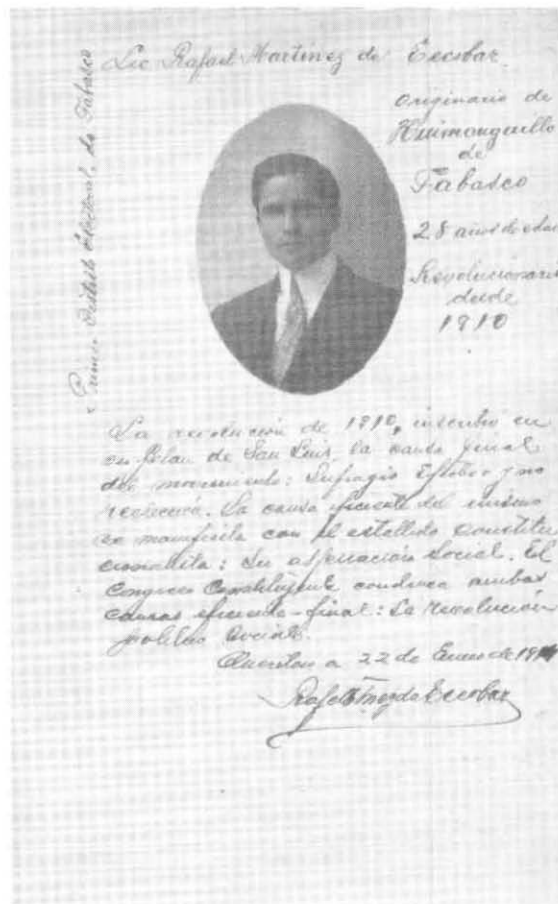 Lic Rafael Martinez de Escobar
Primer Distrito Electoral, de Tabasco
originario de
Huimanguillo
de
Tabasco
28 años de edad
Revolucionario
desde
1910
La revolución de 1910, inscribio en
su Plan de San Luis, la causa final
del movimiento: Sufragio Efectivo y no
reelección. La causa eficiente del mismo
se manifiesta con el estallido constitu
cionalista: Su aspiración Social. El
Congreso Constituyente condensa ambas
causas eficiente-final: La revolución
político social.
Queretaro a 22 de Enero de
Rafael Mnez de Escobar